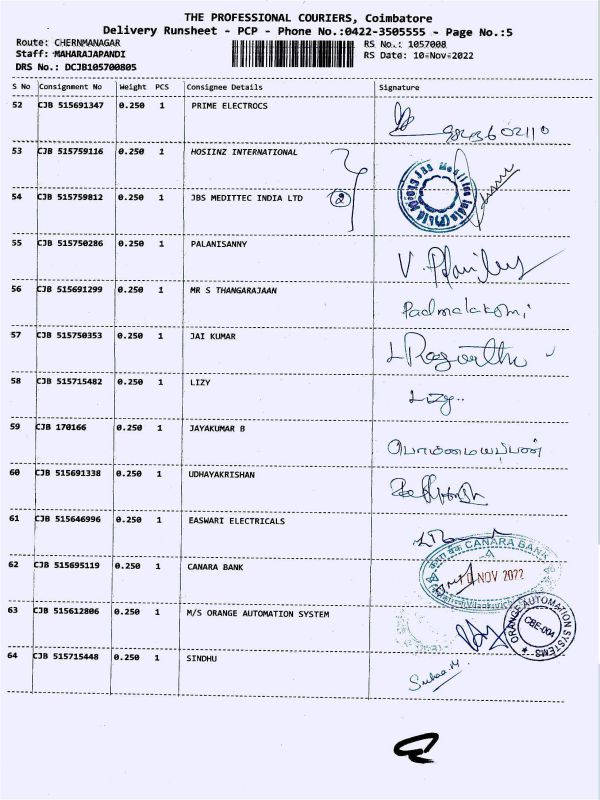 THE PROFESSIONAL COURIERS, Coimbatore
Delivery Runsheet - PCP - Phone No.:0422-3505555 - Page No.:5
Route: CHERNMANAGAR RS No.: 1057008
Staff: MAHARAJAPANDI RS Date: 10-Nov-2022
DRS No.: DCJB105700805
S No Consignment No Weight PCS Consignee Details Signature
52 CJB 515691347 0.250 1 PRIME ELECTROCS
53 CJB 515759116 0.250 1 HOSIINZ INTERNATIONAL
54 CJB 515759812 0.250 1 JBS MEDITTEC INDIA LTD 2
55 CJB 515750286 0.250 1 PALANISANNY
56 CJB 515691299 0.250 1 MR S THANGARAJAAN
Padmalakomi
57 CJB 515750353 0.250 1 JAI KUMAR
58 CJB 515715482 0.250 1 LIZY
Lizy..
59 CJB 170166 0.250 1 JAYAKUMAR B
60 CJB 515691338 0.250 1 UDHAYAKRISHAN
61 CJB 515646996 0.250 1 EASWARI ELECTRICALS
62 CJB 515695119 0.250 1 CANARA BANK
CANARA BANK
10 NOV 2022
63 CJB 515612806 0.250 1 M/S ORANGE AUTOMATION SYSTEM
ORANGE AUTOMATION SYSTEMS
CBE-004
64 CJB 515715448 0.250 1 SINDHU